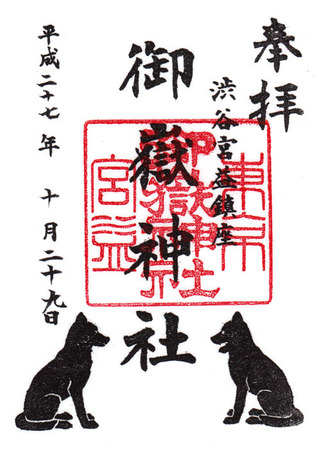 奉拝
渋谷宮益鎮座
御嶽神社
平成二十七年 十月二十九日
東京
御嶽神社
宮益